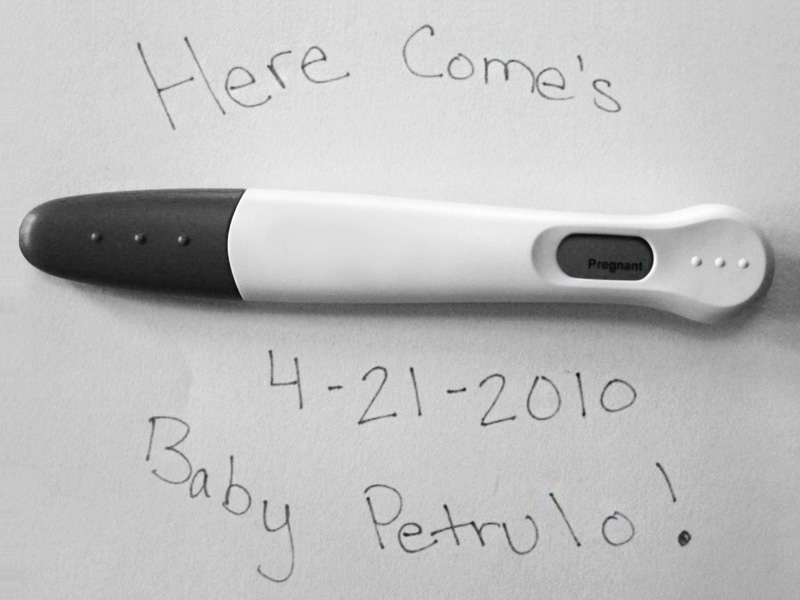 Here Come's
Pregnant
4-21-2010
Baby Petrulo!